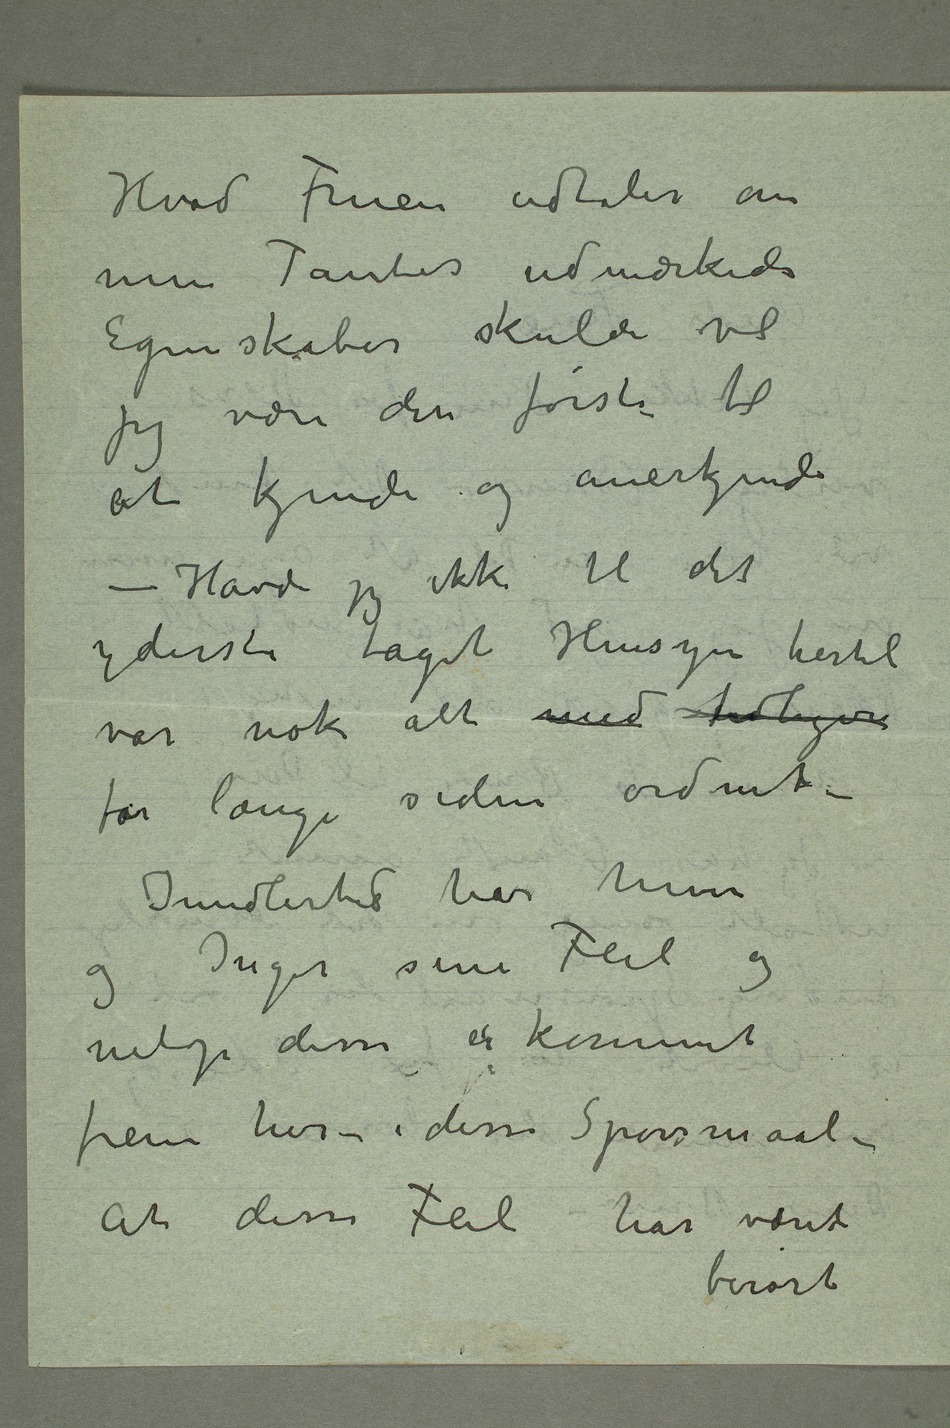 Hvad Fruen udtaler om
min Tantes udmærkede
Egenskaber skulde vel
jeg være den første til
at kjende og anerkjende
— Havde jeg ikke til det
yderste taget Hensyn hertil
var nok alt med tidligere
for længe siden ordnet –
Imidlertid har hun
og Inger sine Feil og
netop disse er kommet
frem her – i disse Spørsmaal –
At disse Feil har været
berørt